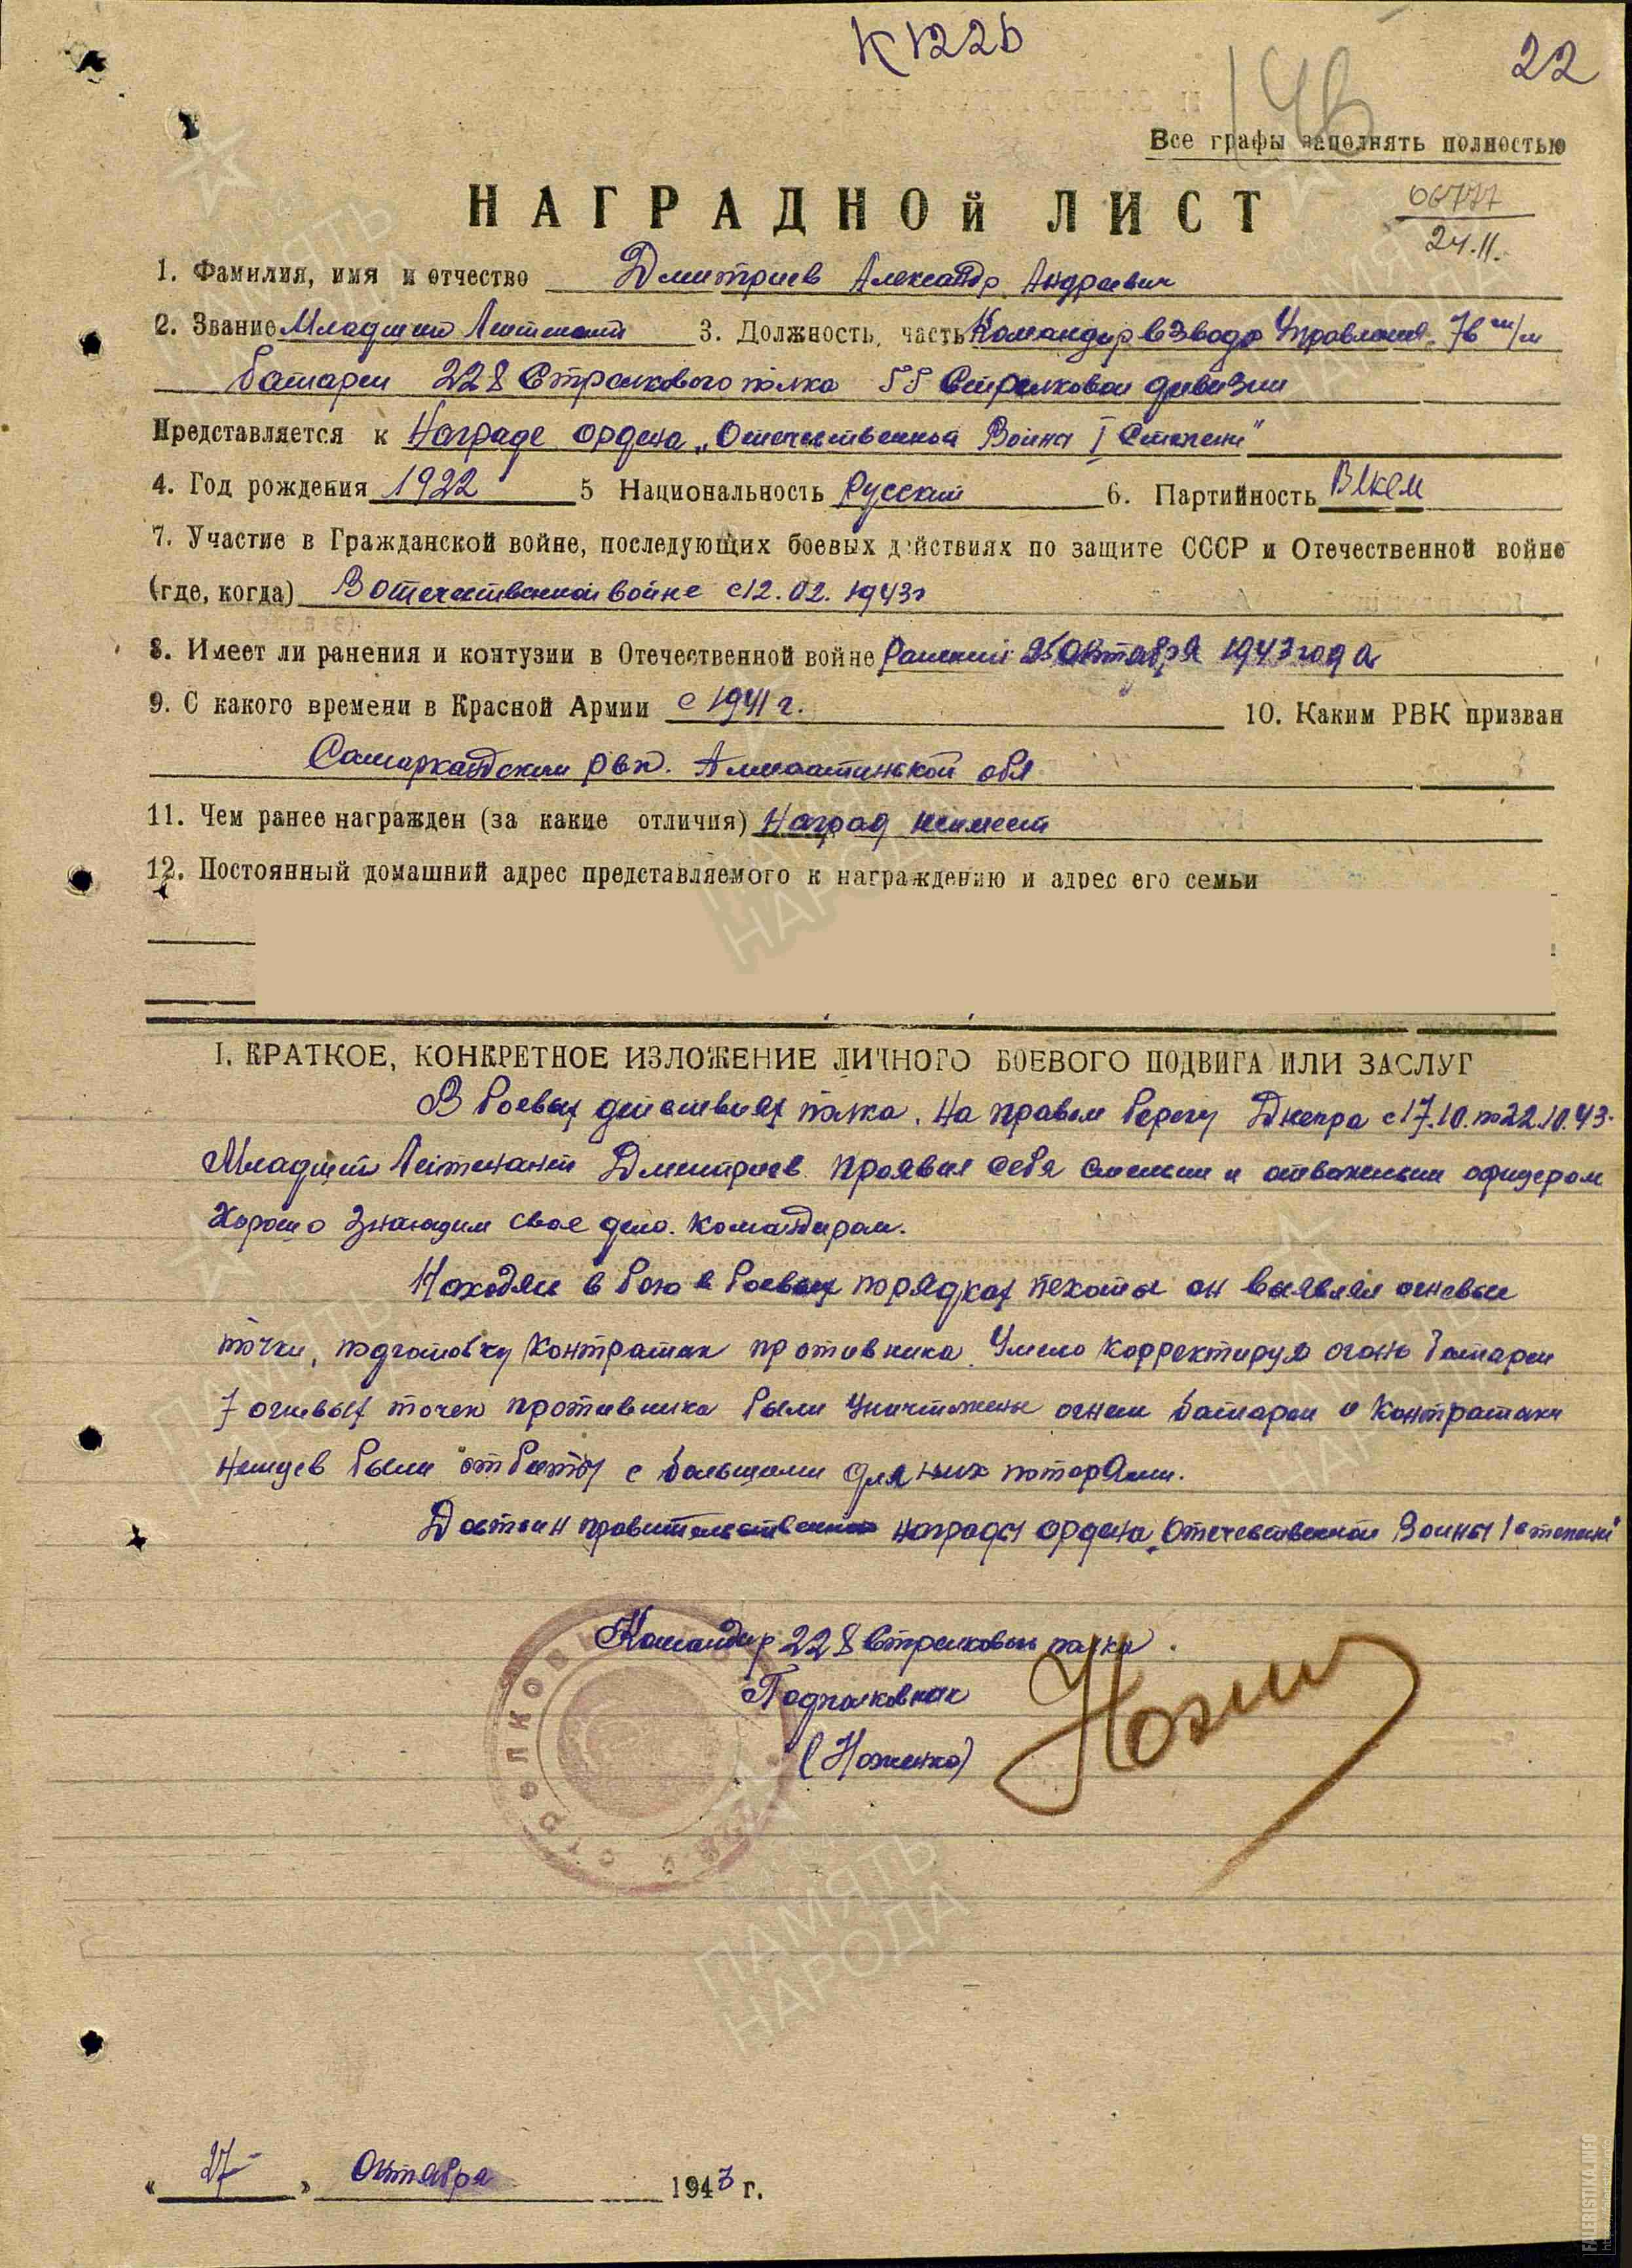 К 1226
22
Все графы заполнять полностью
НАГРАДНОЙ ЛИСТ
06777
24.11.
1. Фамилия, имя и отчество Дмитриев Александр Андреевич
2. Звание Младший Лейтенант 3. Должность, часть Командир взвода Управления 76 м/м
батареи 228 Стрелкового полка 55 Стрелковой дивизии
Представляется к Награде ордена „Отечественной Войны I Степени"
4. Год рождения 1922 5 Национальность русский 6. Партийность ВЛКСМ
7. Участие в Гражданской войне, последующих боевых действиях по защите СССР и Отечественной войне
(где, когда) В отечественной войне с 12.02.1943г
8. Имеет ли ранения и контузии в Отечественной войне Раненый 25 октября 1943 года
9. С какого времени в Красной Армии с 1941 г. 10. Каким РВК призван
Самаркандским рвк. Алмаатинской обл
11. Чем ранее награжден (за какие отличия) Наград неимеет
12. Постоянный домашний адрес представляемого к награждению и адрес его семьи
I. КРАТКОЕ, КОНКРЕТНОЕ ИЗЛОЖЕНИЕ ЛИЧНОГО БОЕВОГО ПОДВИГА ИЛИ ЗАСЛУГ
В боевых действиях полка. На правом берегу Днепра с 17.10. по 22.10.43.
Младший Лейтенант Дмитриев проявил себя смелым и отважным офицером
Хорошо знающим свое дело. командиром.
Находясь в бою в боевых порядках пехоты он выявлял огневые
точки, подготовку контратак противника. Умело корректируя огонь батареи
7 огневых точек противника были уничтожены огнем батареи и контратаки
немцев были отбиты с большими для них потерями.
Достоин правительственной награды ордена „Отечественной Войны I степени"
Командир 228 стрелковым полка.
Подполковник
(Ноженко)
«27» Октября 1943 г.
ПАМЯТЬ
НАРОДА
FALERISTIKA.INFO